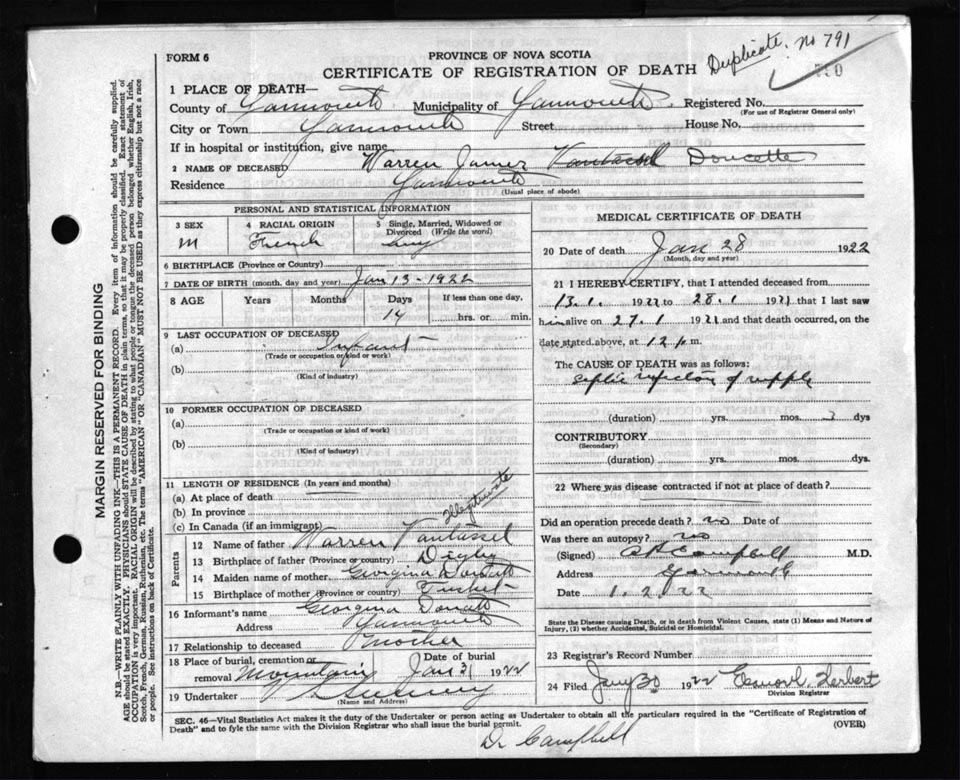 FORM 6
PROVINCE OF NOVA SCOTIA
CERTIFICATE OF REGISTRATION OF DEATH
Duplicate. No 791
1 PLACE OF DEATH—
County of Yarmouth Municipality of Yarmouth Registered No.
(For use of Registrar General only)
City or Town Yarmouth Street House No.
If in hospital or institution, give name
2 NAME OF DECEASED Warren James Vantassel Doucette
Residence Yarmouth
(Usual place of abode)
PERSONAL AND STATISTICAL INFORMATION
3 SEX
M
4 RACIAL ORIGIN
French
5 Single, Married, Widowed or Divorced (Write the word)
6 BIRTHPLACE (Province or Country)
7 DATE OF BIRTH (month, day and year) Jan 13-1922
8 AGE Years Months Days If less than one day,
14 hrs. or min.
9 LAST OCCUPATION OF DECEASED
(a) Infant
(Trade or occupation or kind of work)
(b)
(Kind of industry)
10 FORMER OCCUPATION OF DECEASED
(a)
(Trade or occupation or kind of work)
(b)
(Kind of industry)
11 LENGTH OF RESIDENCE (In years and months)
(a) At place of death
(b) In province
(c) In Canada (if an immigrant)
Illegitimate
Parents
12 Name of father Warren Vantassel
13 Birthplace of father (Province or country) Digby
14 Maiden name of mother Georgina
15 Birthplace of mother (Province or country) Tusket
16 Informant's name Georgina
Address Yarmouth
17 Relationship to deceased Mother
18 Place of burial, cremation or removal Mountain Date of burial Jan 31 1922
19 Undertaker
(Name and Address)
MEDICAL CERTIFICATE OF DEATH
20 Date of death Jan 28 1922
(Month, day and year)
21 I HEREBY CERTIFY, that I attended deceased from
13.1. 1922 to 28.1 1922 that I last saw
him alive on 27.1 1922 and that death occurred, on
date stated above, at 12 m.
The CAUSE OF DEATH was as follows:
septic infection of nipple
(duration) yrs. mos. dys
CONTRIBUTORY
(Secondary)
(duration) yrs. mos. dys
22 Where was disease contracted if not at place of death?
Did an operation precede death? no Date of
Was there an autopsy? no
(Signed) Campbell M.D.
Address Yarmouth
Date 1.2.22
State the Disease causing Death, or in death from Violent Causes, state (1) Means and Nature of
Injury, (2) whether Accidental, Suicidal or Homicidal.
23 Registrar's Record Number
24 Filed Jany 30 1922 Herbert
Division Registrar
SEC. 46—Vital Statistics Act makes it the duty of the Undertaker or person acting as Undertaker to obtain all the particulars required in the "Certificate of Registration of
Death" and to fyle the same with the Division Registrar who shall issue the burial permit.
(OVER)
Dr Campbell
MARGIN RESERVED FOR BINDING
N.B.—WRITE PLAINLY WITH UNFADING INK—THIS IS A PERMANENT RECORD. Every item of information should be carefully supplied.
AGE should be stated EXACTLY. PHYSICIANS should STATE CAUSE OF DEATH in plain terms, so that it may be properly classified. Exact statement of
OCCUPATION is very important. RACIAL ORIGIN will be described by stating to what people or tongue the deceased person belonged whether English, Irish,
Scotch, French, German, Russian, Ruthenian, etc. The terms "AMERICAN" OR "CANADIAN" MUST NOT BE USED as they express citizenship but not a race
or people. See instructions on back of Certificate.